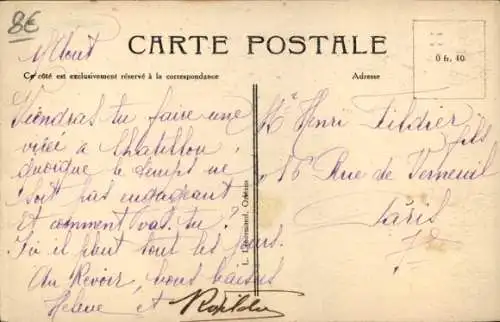 8€
Août
CARTE POSTALE
Ce côté est exclusivement réservé à la correspondance
Adresse
0 fr. 40
Viendras tu faire une
virée à Chatillon,
quoique le temps ne
soit pas engageant
Et comment vas tu?
Ici il pleut tout les jours.
Au Revoir, nous baisers
Helene et
L. Lenormand, Orléans
Mr Henri Fildier
fils
16 Rue de Verneuil
Paris
7e